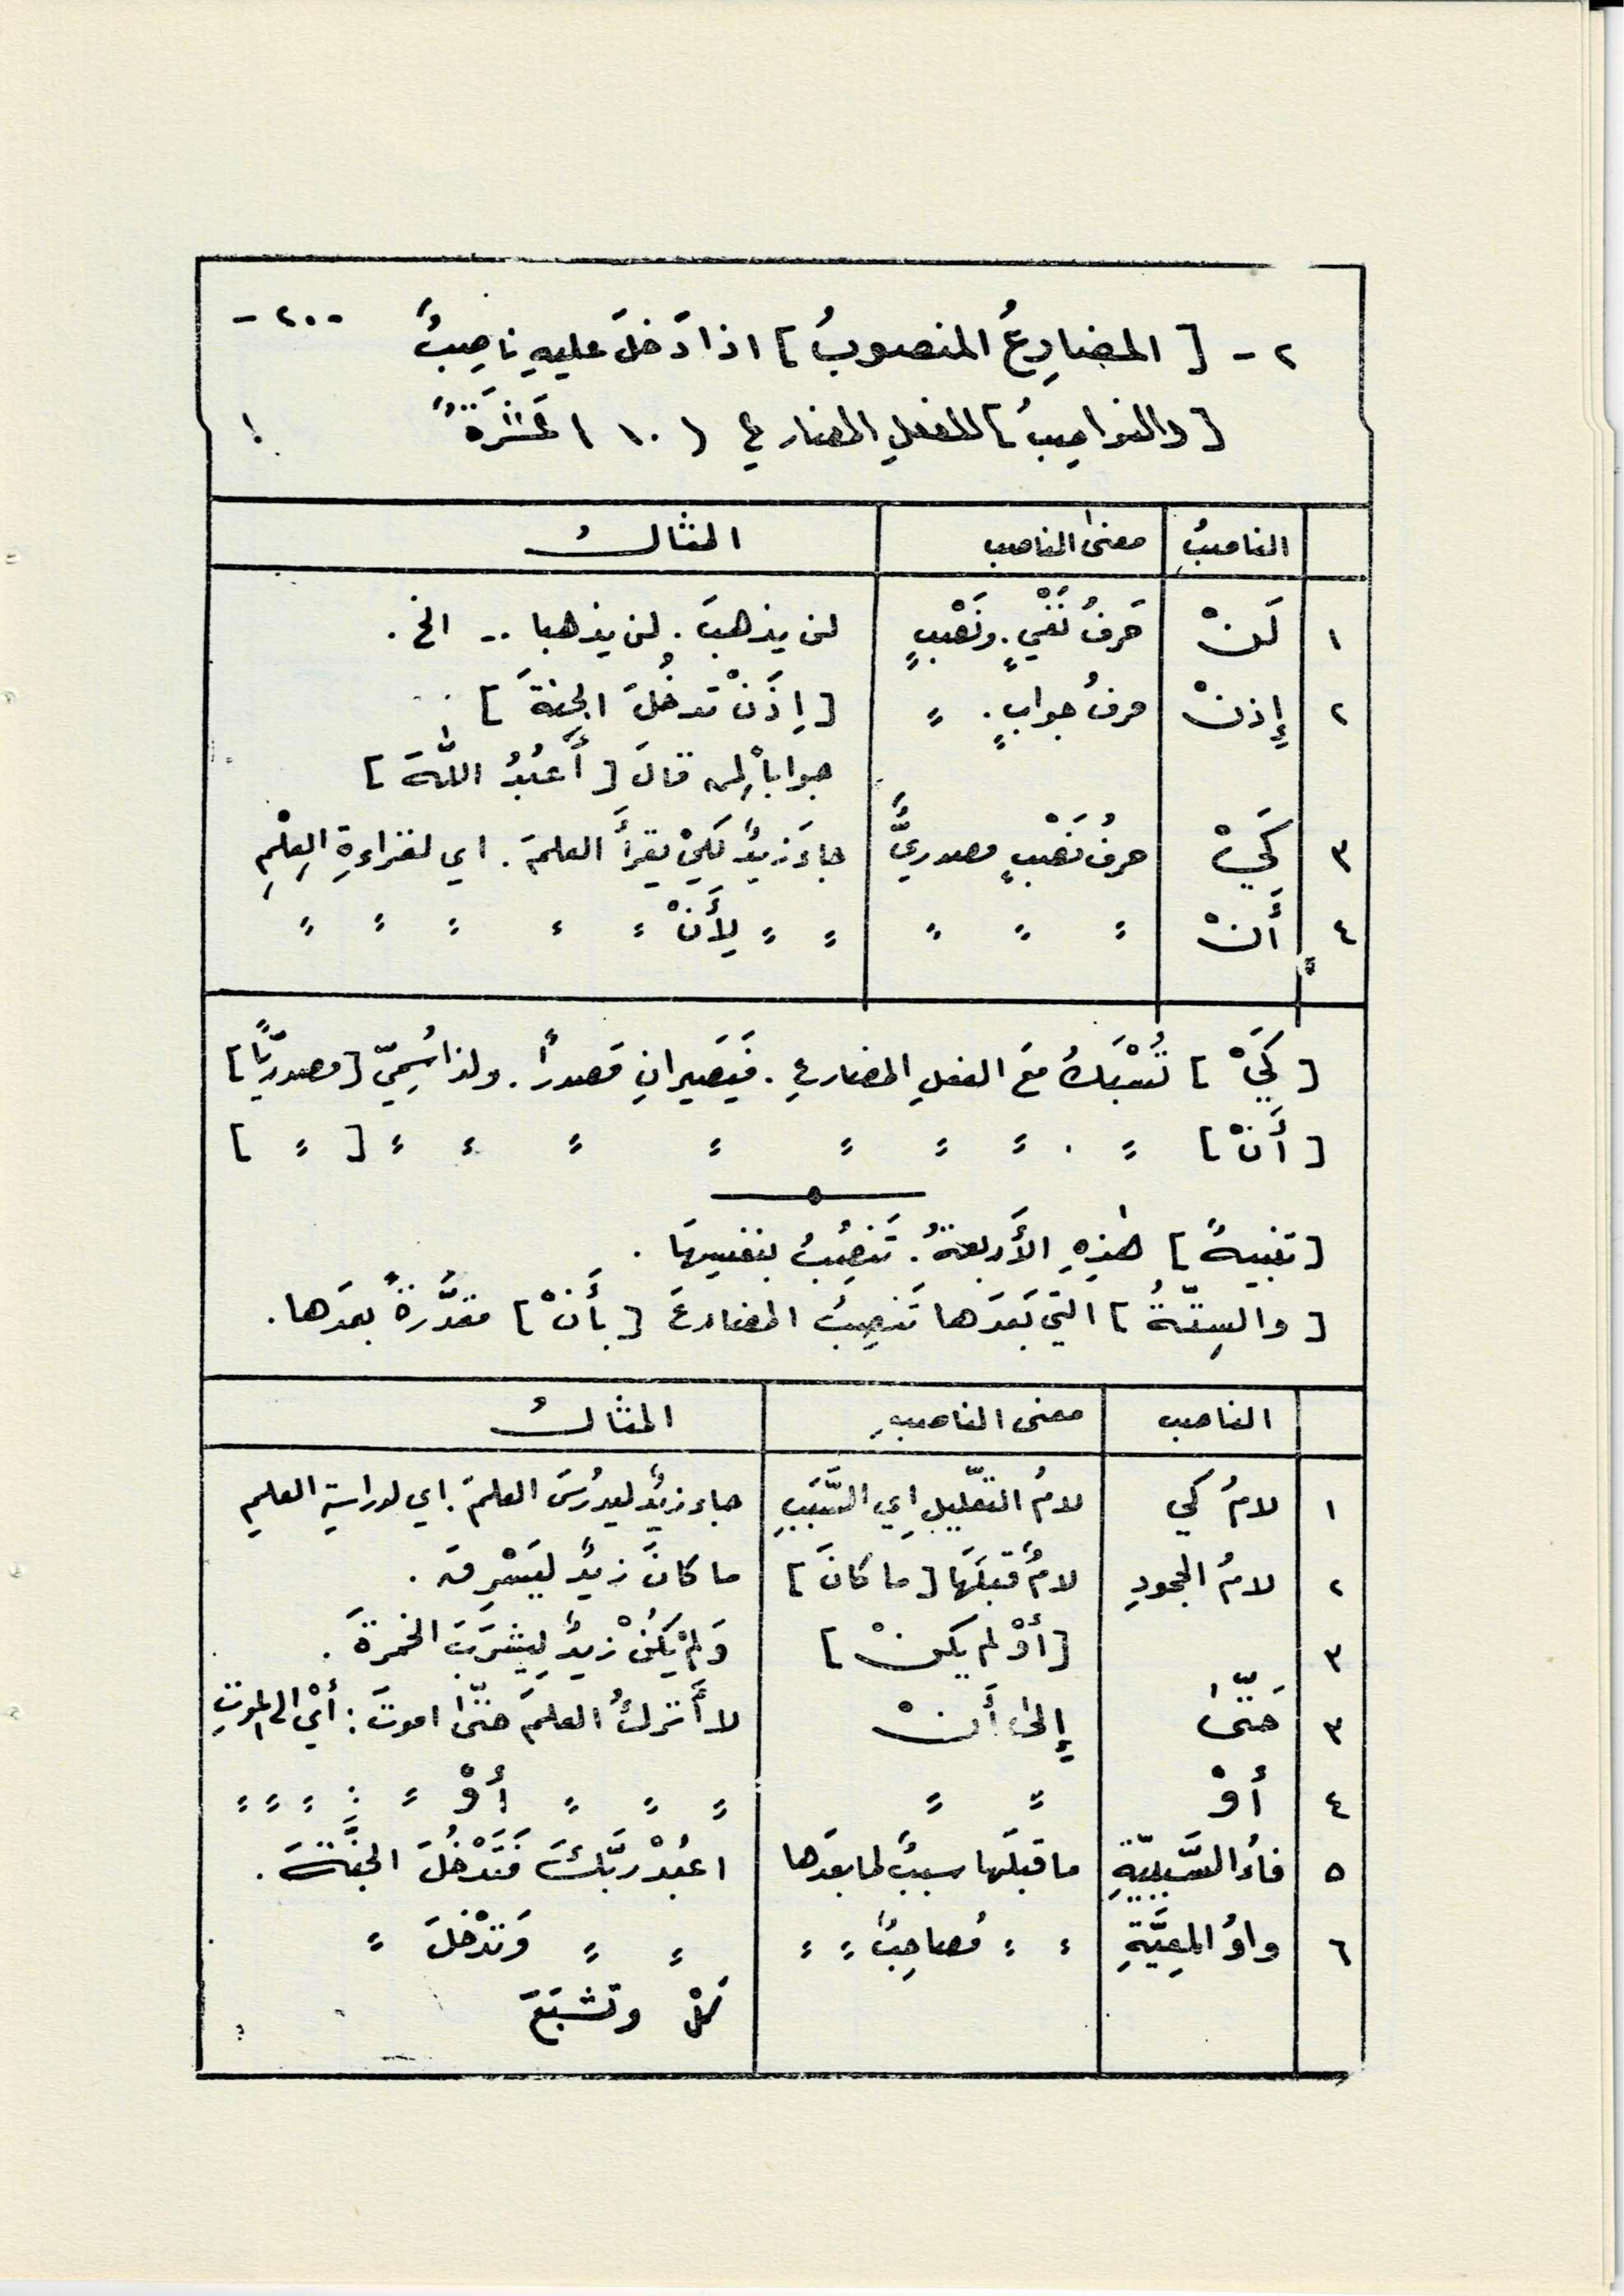 - ٢٠ -
٢ - [ المضارِعُ المنصوبُ ] اذا دَخلَ عليهِ ناصِبٌ
[ والنواصِبُ ] للفعلِ المضارعِ ( ١٠ ) عَشَرَةٌ
الناصبُ معنىٰ الناصب المثالُ
١ لَنْ حَرفُ نَفْيٍ . ونَصْبٍ لن يذهبَ . لن يذهبا .. الخ .
٢ إِذنْ حرفُ جوابٍ . = [ اِذَنْ تدخُلَ الجنةَ ]
جواباً لِمن قالَ [ أَعبُدُ اللّٰهَ ]
٣ كَيْ حرفُ نَصْبٍ مصدريٌّ جاءَ زيدٌ لكيْ يقرأَ العلمَ . اي لقراءةِ العِلْمِ
٤ أَنْ = = = = = لِأَنْ = = = = =
[ كَيْ ] تُسْبَكُ مَعَ الفعلِ المضارعِ . فَيَصيرانِ مَصدراً . ولذا سُمِيّ [ مصدريّاً ]
[ أَنْ ] = . = = = = = = = [ = ]
[ تنبيهٌ ] هٰذِهِ الأَربعةُ . تَنصِبُ بنفسِهَا .
[ والسِتّةُ ] التي بَعدَها تَنصِبُ المضارعَ [ بأَنْ ] مقدَّرةً بعدَها .
الناصب معنى الناصبِ المثالُ
١ لامُ كَي لامُ التعّليلِ اِي السَّبَبِ جاء زيدٌ ليدرُسَ العلمَ . اي لدراسةِ العلمِ
٢ لامُ الجحودِ لامٌ قبلَهَا [ ما كانَ ] ما كانَ زيدٌ ليَسْرِقَ .
٣ [ أوْ لم يكنْ ] وَلمْ يَكُنْ زيدٌ لِيشرَبَ الخمرةَ .
٣ حَتّىٰ إِلىٰ أَنْ لا أَتركُ العلمَ حتّىٰ اموتَ : أيْ الى الموتِ
٤ أوْ = = = = = أوْ = : = = =
٥ فاءُ السَّببيّةِ ما قبلَها سببٌ لما بعدَها اعبُدْ ربَّكَ فَتَدْخُلَ الجنَّةَ .
٦ واوُ المعِيَّةِ = = مُصاحِبٌ = = = = وَتدْخلَ =
كلْ وتشبَعَ